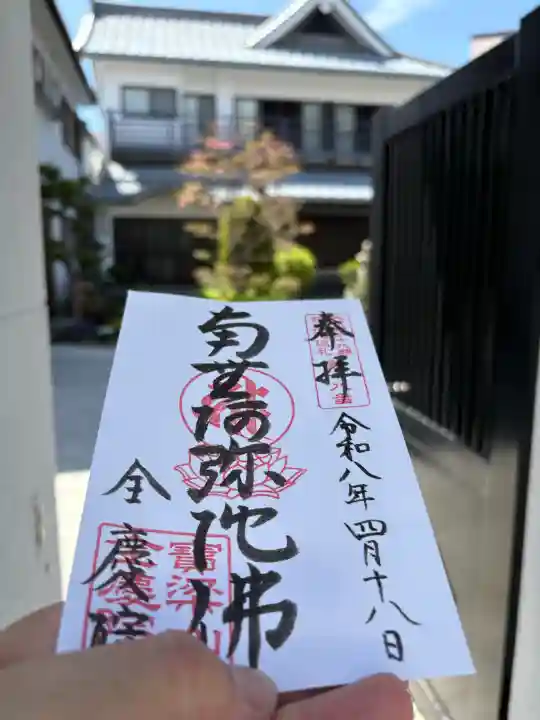 奉拝
令和八年四月十八日
南無阿弥陀佛
全慶院